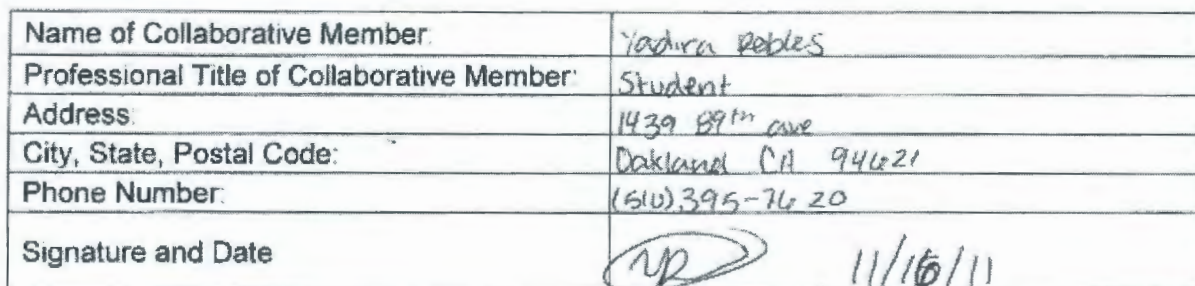 Name of Collaborative Member: Yadira Robles
Professional Title of Collaborative Member: Student
Address: 1439 89th ave
City, State, Postal Code: Oakland CA 94621
Phone Number: (510) 395-7620
Signature and Date YR 11/16/11